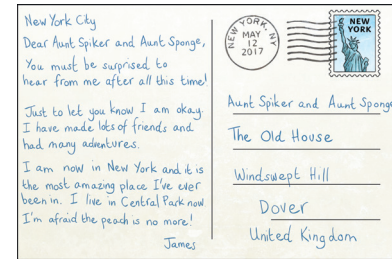 New York City
Dear Aunt Spiker and Aunt Sponge,
You must be surprised to
hear from me after all this time!
Just to let you know I am okay.
I have made lots of friends and
had many adventures.
I am now in New York and it is
the most amazing place I've ever
been in. I live in Central Park now
I'm afraid the peach is no more!
James
NEW YORK, NY
MAY
12
2017
NEW
YORK
Aunt Spiker and Aunt Sponge
The Old House
Windswept Hill
Dover
United Kingdom